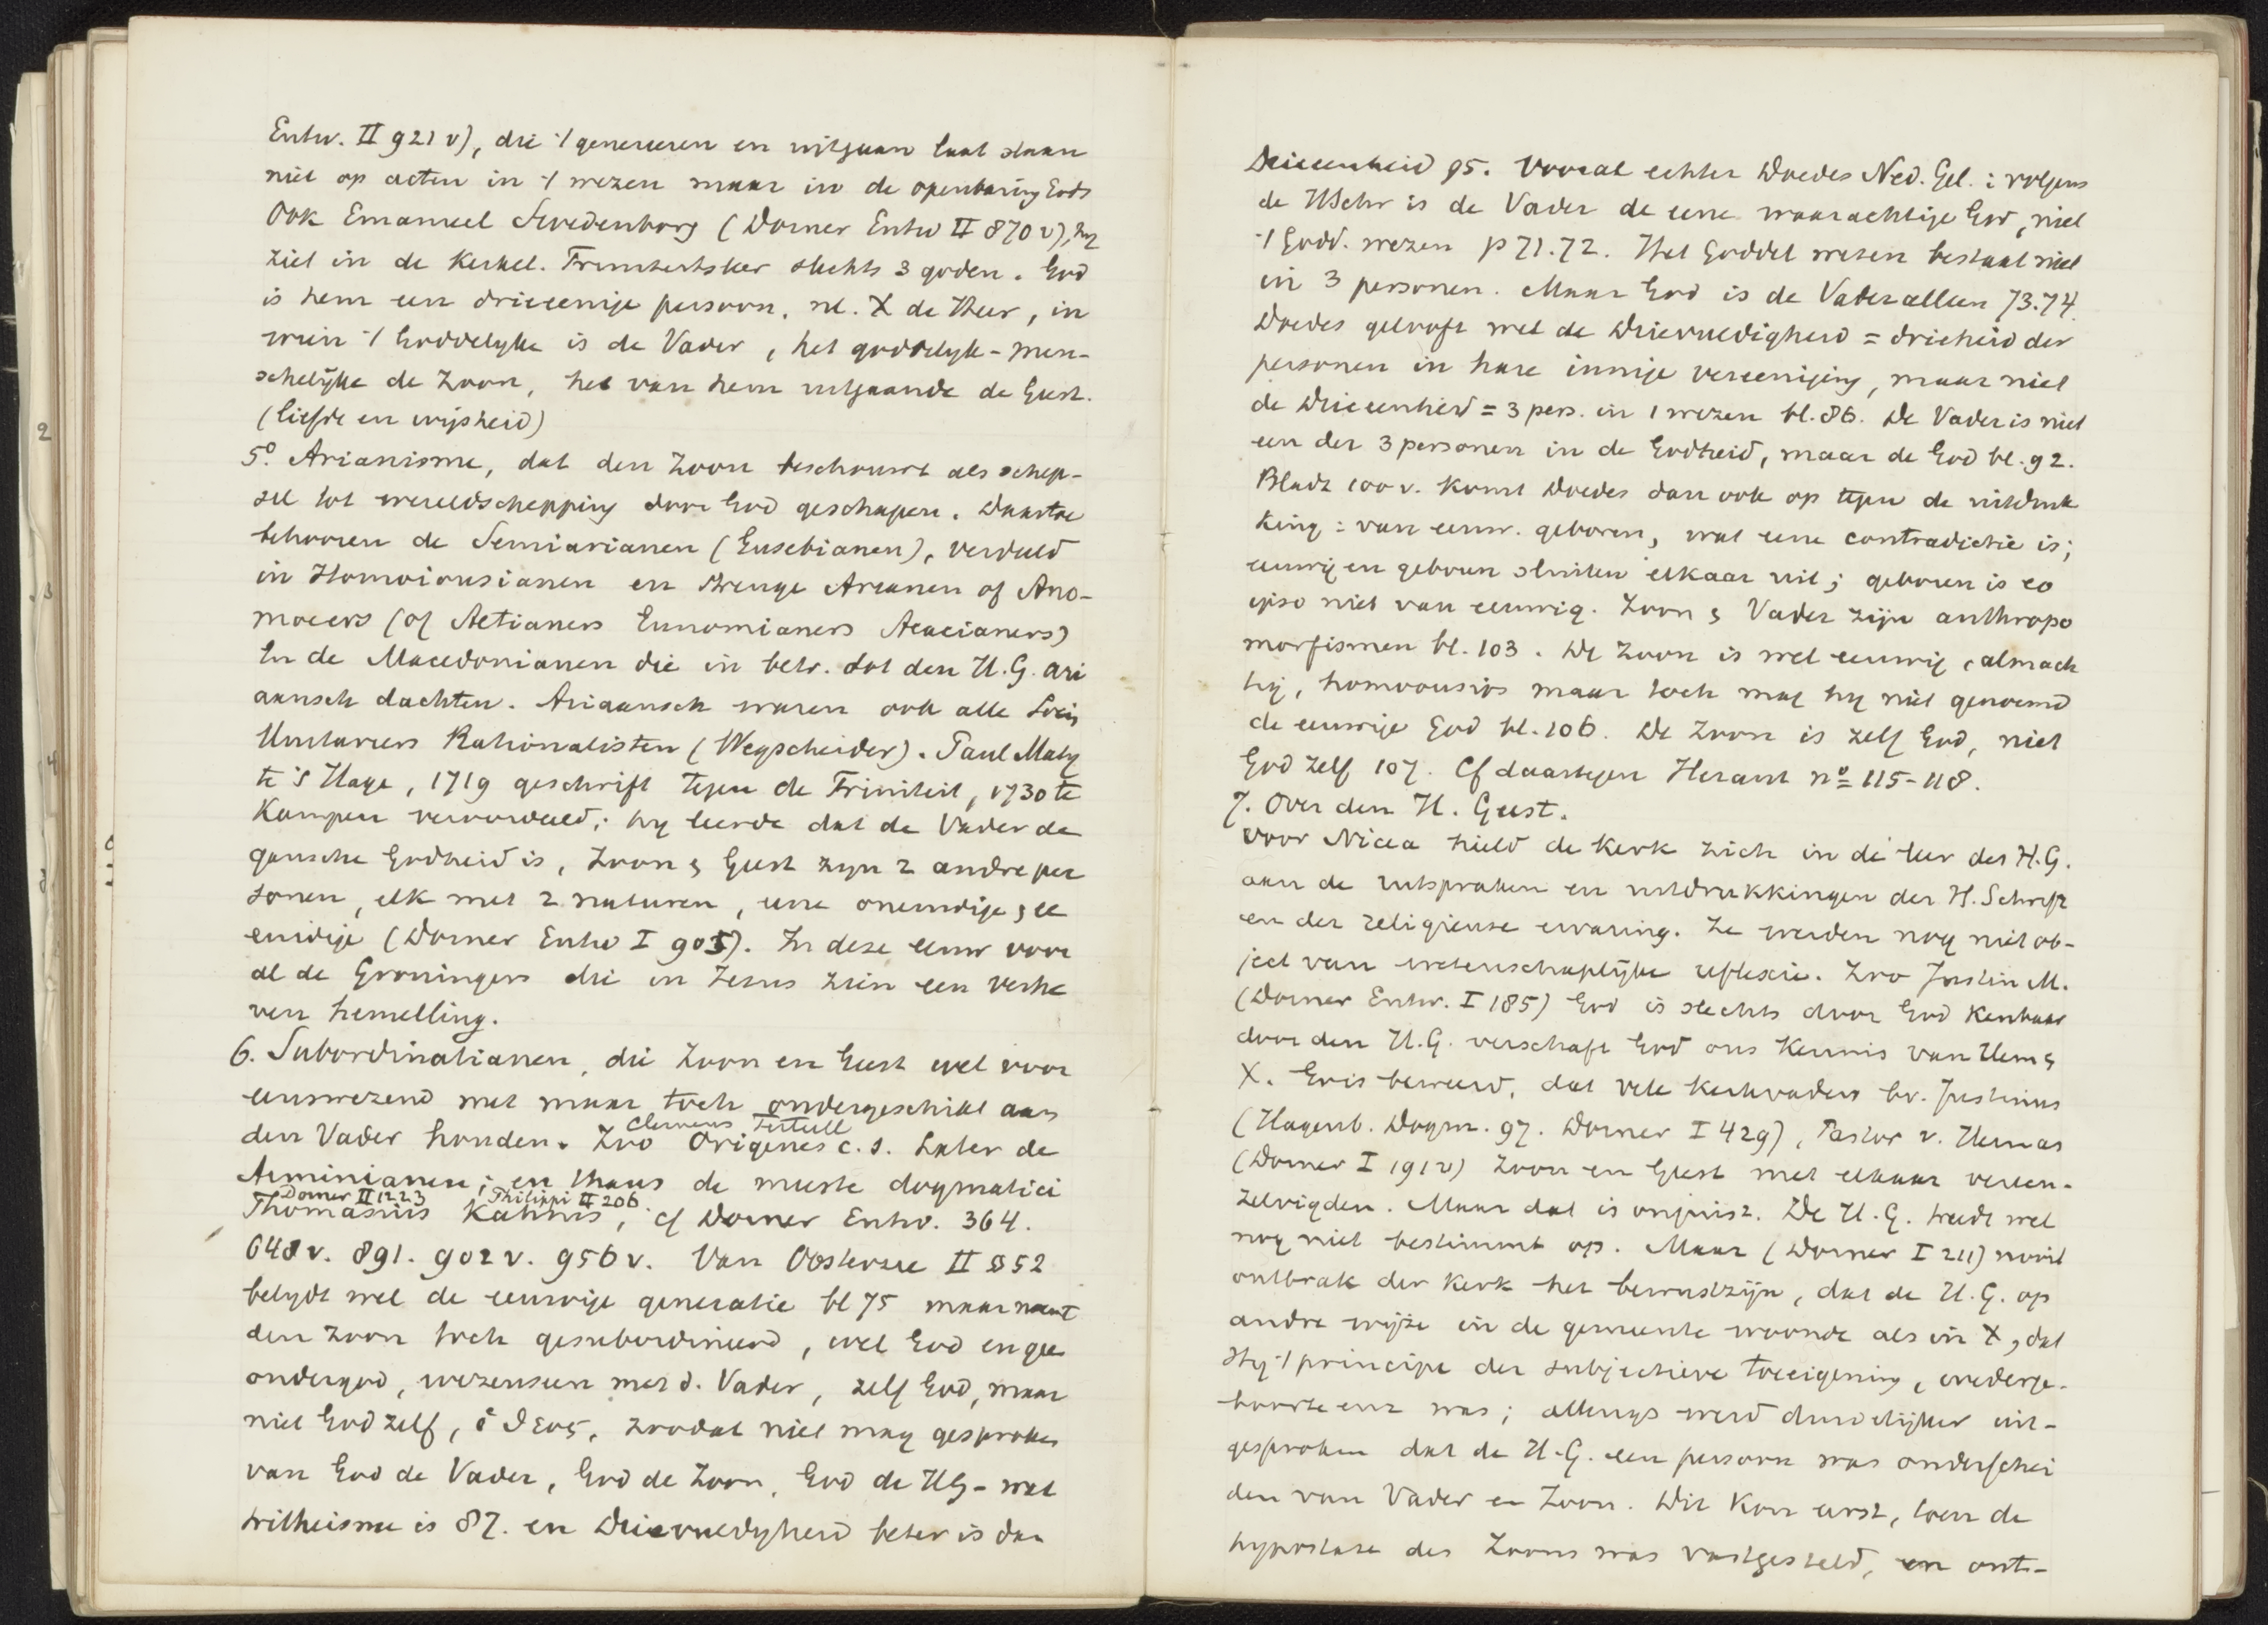 Entw. II 921 v), die '/ genereeren en uitgaan laat slaan
niet op acten in '/ wezen maar in de openbaring Gods
Ook Emanuel Swedenborg (Dorner Entw II 870 v), hy
ziet in de Kerkel. slechts 3 goden. God
is hem een drieeenige persoon, nl. X de Heer, in
wien '/ Goddelyke is de Vader, het goddelyk-men-
schelijke de Zoon, het van hem uitgaande de Geest.
(liefde en wijsheid)
5º. Arianisme, dat den Zoon beschouwt als schep-
sel tot wereldschepping door God geschapen. Daartoe
behooren de Semiarianen (Eusebianen), verdeeld
in Homoiousianen en strenge Arianen of Ano-
moeers (of Aetianers Eunomianers Acacianers)
En de Macedonianen die in betr. tot den H.G. ari
aansch dachten. Ariaansch waren ook alle Socin
Unitariers Rationalisten (Wegscheider). Paul Maty
te 's Hage, 1719 geschrift tegen de Triniteit, 1730 te
Kampen veroordeeld; hy leerde dat de Vader de
gansche Godheid is, Zoon & Geest zyn 2 andre per
sonen, elk met 2 naturen, eene oneindige & ee
eindige (Dorner Entw I 905). In deze eeuw voor
al de Groningers die in Jezus zien een verhe
ven hemelling.
6. Subordinatianen, die Zoon en Geest wel voor
eenswezend met maar toch ondergeschikt aan
den Vader houden. Zoo Clemens Tertull Origenes c.s. Later de
Arminianen; en thans de meeste dogmatici
Thomasius Dorner II 1223 Kahnis Philippi II 206, cf Dorner Entw. 364.
648 v. 891. 902 v. 956 v. Van Oosterzee II § 52
belydt wel de eeuwige generatie bl 75 maar noemt
den Zoon toch gesubordineerd, wel God en gee
ondergod, wezenseen met d. Vader, zelf God, maar
niet God zelf, ὁ θεος, zoodat niet mag gesproken
van God de Vader, God de Zoon, God de HG - wat
tritheisme is 87. en Drievuldigheid beter is dan
Drieeenheid 95. Vooral echter Doedes Ned. Gel.: volgens
de HSchr is de Vader de eene waarachtige God, niet
'/ Godd. wezen p 71.72. Het Goddel wezen bestaat niet
in 3 personen. Maar God is de Vader alleen 73.74.
Doedes gelooft wel de Drievuldigheid = drieheid der
personen in hare innige vereeniging, maar niet
de Drieeenheid = 3 pers. in 1 wezen bl. 86. De Vader is niet
een der 3 personen in de Godheid, maar de God bl. 92.
Bladz 100 v. komt Doedes dan ook op tegen de uitdruk
king: van eeuw. geboren, wat eene contradictie is;
eeuwig en geboren sluiten elkaar uit; geboren is eo
ipso niet van eeuwig. Zoon & Vader zijn anthropo
morfismen bl. 103. De Zoon is wel eeuwig, almach
tig, homoousios maar toch mag hy niet genoemd
de eeuwige God bl. 106. De Zoon is zelf God, niet
God zelf 107. Cf daartegen Heraut nº 115-118.
7. Over den H. Geest.
Voor Nicea hield de Kerk zich in de leer des H.G.
aan de uitspraken en uitdrukkingen der H. Schrift
en der religieuse ervaring. Ze werden nog niet ob-
ject van wetenschaplijke reflexie. Zoo Justin M.
(Dorner Entw. I 185) God is slechts door God kenbaar
door den H.G. verschaft God ons kennis van Hem &
X. Er is beweerd, dat vele Kerkvaders bv. Justinus
(Hagenb. Dogm. 97. Dorner I 429), Pastor v. Hermas
(Dorner I 191 v) Zoon en Geest met elkaar vereen-
zelvigden. Maar dat is onjuist. De H.G. treedt wel
nog niet bestimmt op. Maar (Dorner I 211) nooit
ontbrak der Kerk het bewustzijn, dat de H.G. op
andre wijze in de gemeente woonde als in X, dat
Hy '/ principe der subjectieve toeeigening, wederge-
boorte enz was; allengs werd duidelijker uit-
gesproken dat de H.G. een persoon was onderschei
den van Vader en Zoon. Dit kon eerst, toen de
hypostase des Zoons was vastgesteld, en ont-